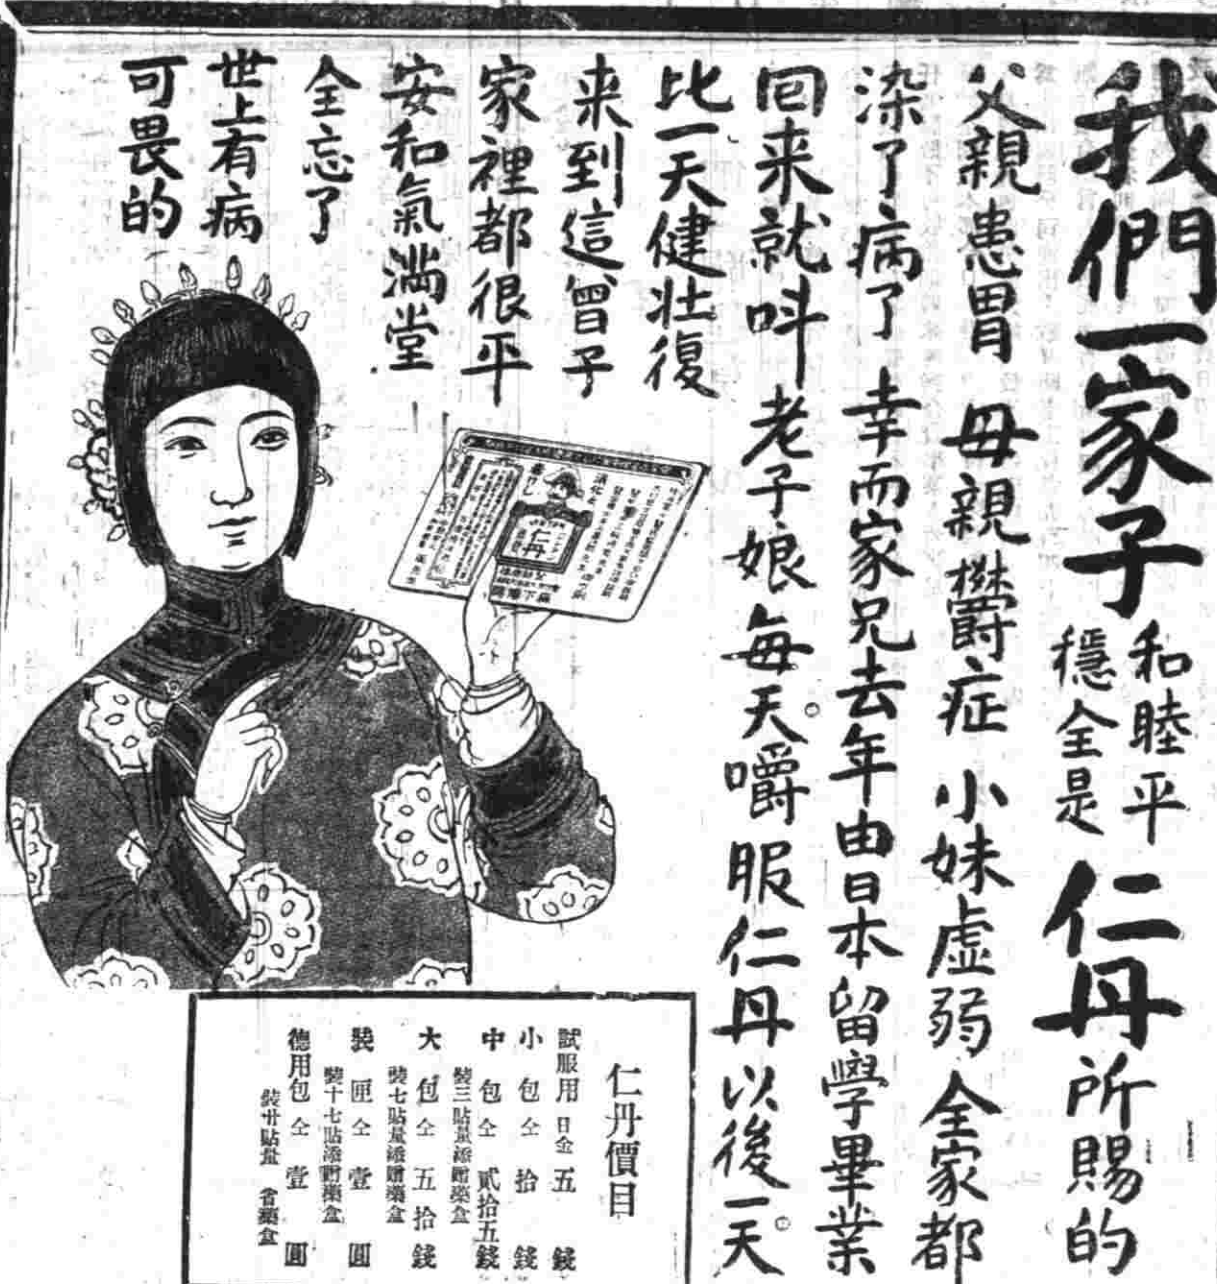 我們一家子和睦平穩全是仁丹所賜的
父親患胃 母親欝症 小妹虛弱 全家都
染了病了 幸而家兄去年由日本留學畢業
回来就呌 老子娘每天嚼服仁丹以後一天
比一天健壯復
来到這曾子
家裡都很平
安和氣滿堂
全忘了
世上有病
可畏的
仁丹
仁丹價目
試服用 日金 五 錢
小包 仝 拾 錢
中包 仝 貳拾五錢
裝三貼量添贈藥盒
大包 仝 五拾錢
裝七貼量添贈藥盒
裝匣 仝 壹 圓
裝十七貼添贈藥盒
德用包 仝 壹 圓
裝廿貼量 省藥盒